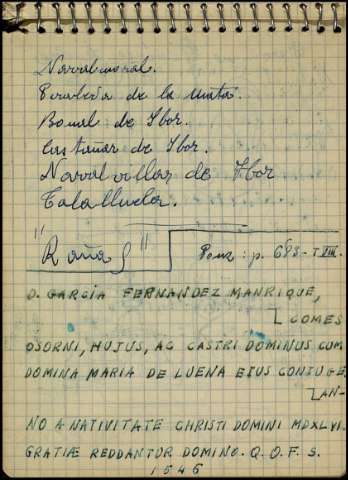 Navalmoral.
Peraleda de la mata.
Bonal de Ibor.
Castañar de Ibor.
Navalvillar de Ibor
Talalluelar.
"Rañas"
Ponz: p. 683 - T VIII.
D. GARCÍA FERNANDEZ MANRIQUE,
COMES
OSORNI, HUJUS, AC CASTRI DOMINUS CUM
DOMINA MARIA DE LUENA EIUS CONIUGE
AN-
NO A NATIVITATE CHRISTI DOMINI MDXLVI.
GRATIÆ REDDANTUR DOMINO. Q. O. F. S.
1546